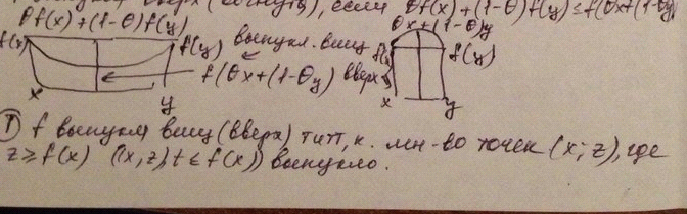 вверх (вогнута), если θf(x)+(1-θ)f(y)≤f(θx+(1-θ)y)
θf(x)+(1-θ)f(y)
θx+(1-θ)y
f(x) f(y) выпукл. вниз f(x) f(y)
f(θx+(1-θy) вверх
x y x y
f выпукла вниз (вверх) титт, к. мн-во точек (x; z), где
z≥f(x) ((x,z), t≤f(x)) выпукло.